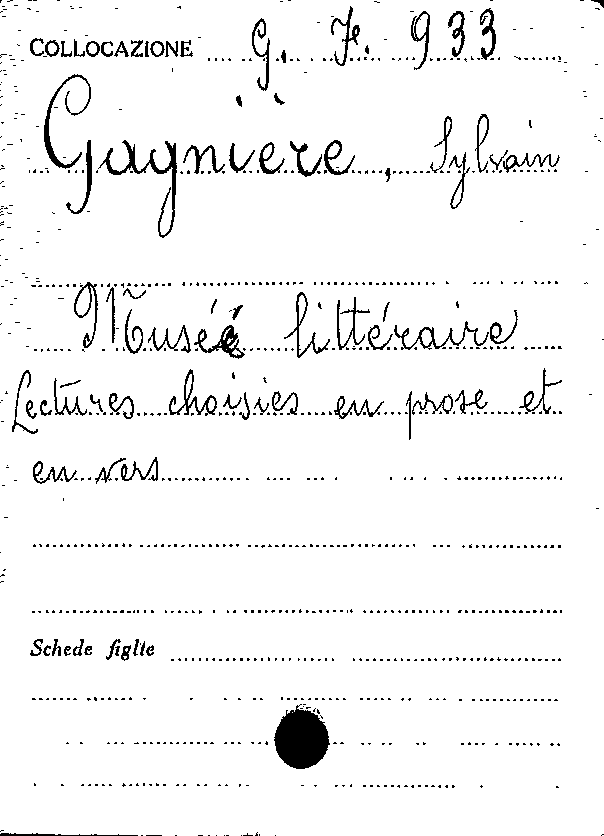 COLLOCAZIONE G. Fr. 933
Gagnière, Sylvain
Musée littéraire
Lectures choisies en prose et
en vers
Schede figlie